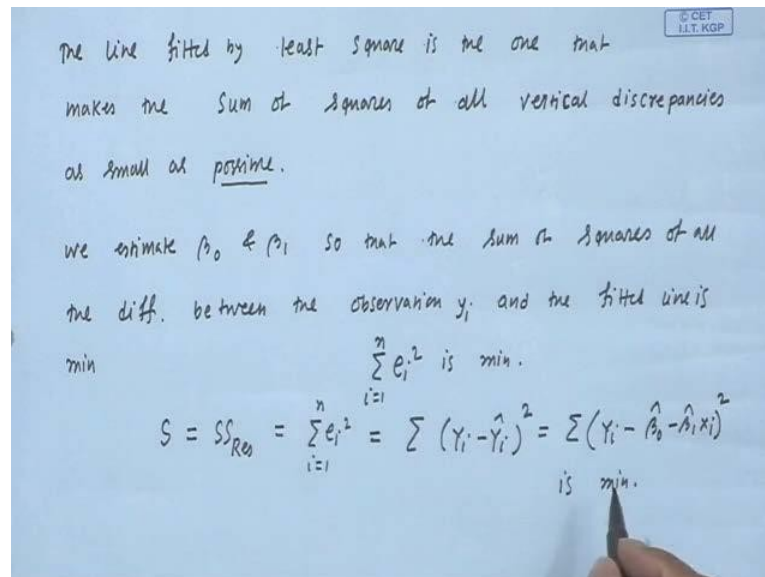 © CET
I.I.T. KGP
The line fitted by least square is the one that
makes the sum of squares of all vertical discrepancies
as small as possible.
We estimate β₀ & β₁ so that the sum of squares of all
the diff. between the observation yᵢ and the fitted line is
min $\sum_{i=1}^{n} e_i^2$ is min.
$S = SS_{Res} = \sum_{i=1}^{n} e_i^2 = \sum (Y_i - \hat{Y}_i)^2 = \sum (Y_i - \hat{\beta}_0 - \hat{\beta}_1 x_i)^2$
is min.